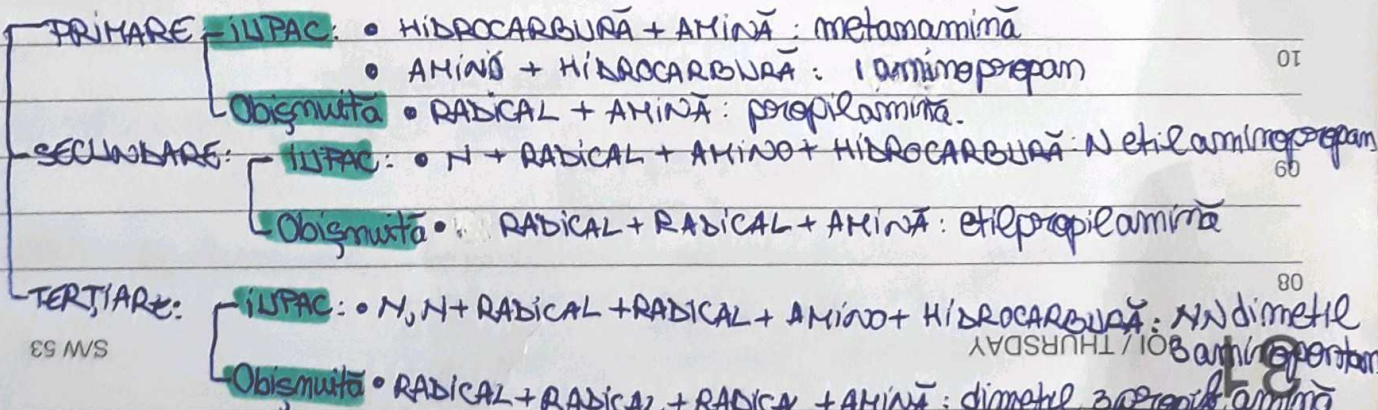 PRIMARE IUPAC: • HIDROCARBURĂ + AMINĂ: metanamină
• AMINO + HIDROCARBURĂ: 1 aminopropan
Obișnuită • RADICAL + AMINĂ: propilamină.
SECUNDARE: IUPAC: • N + RADICAL + AMINO + HIDROCARBURĂ: N etilaminopropan
Obișnuită • RADICAL + RADICAL + AMINĂ: etilpropilamină
TERȚIARE: IUPAC: • N,N + RADICAL + RADICAL + AMINO + HIDROCARBURĂ: NN dimetil
3 aminopentan
Obișnuită • RADICAL + RADICAL + RADICAL + AMINĂ: dimetil amină
10
09
08
31
JOI / THURSDAY
S/W 53